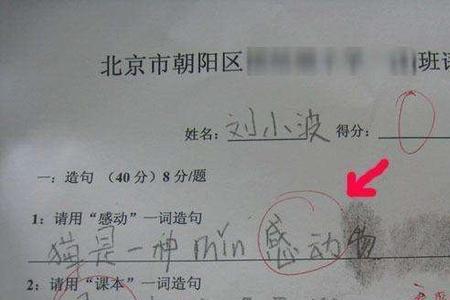 北京市朝阳区 班
姓名：刘小波 得分：
一：造句 （40分）8分/题
1：请用“感动”一词造句
猫是一种min感动物
2：请用“课本”一词造句